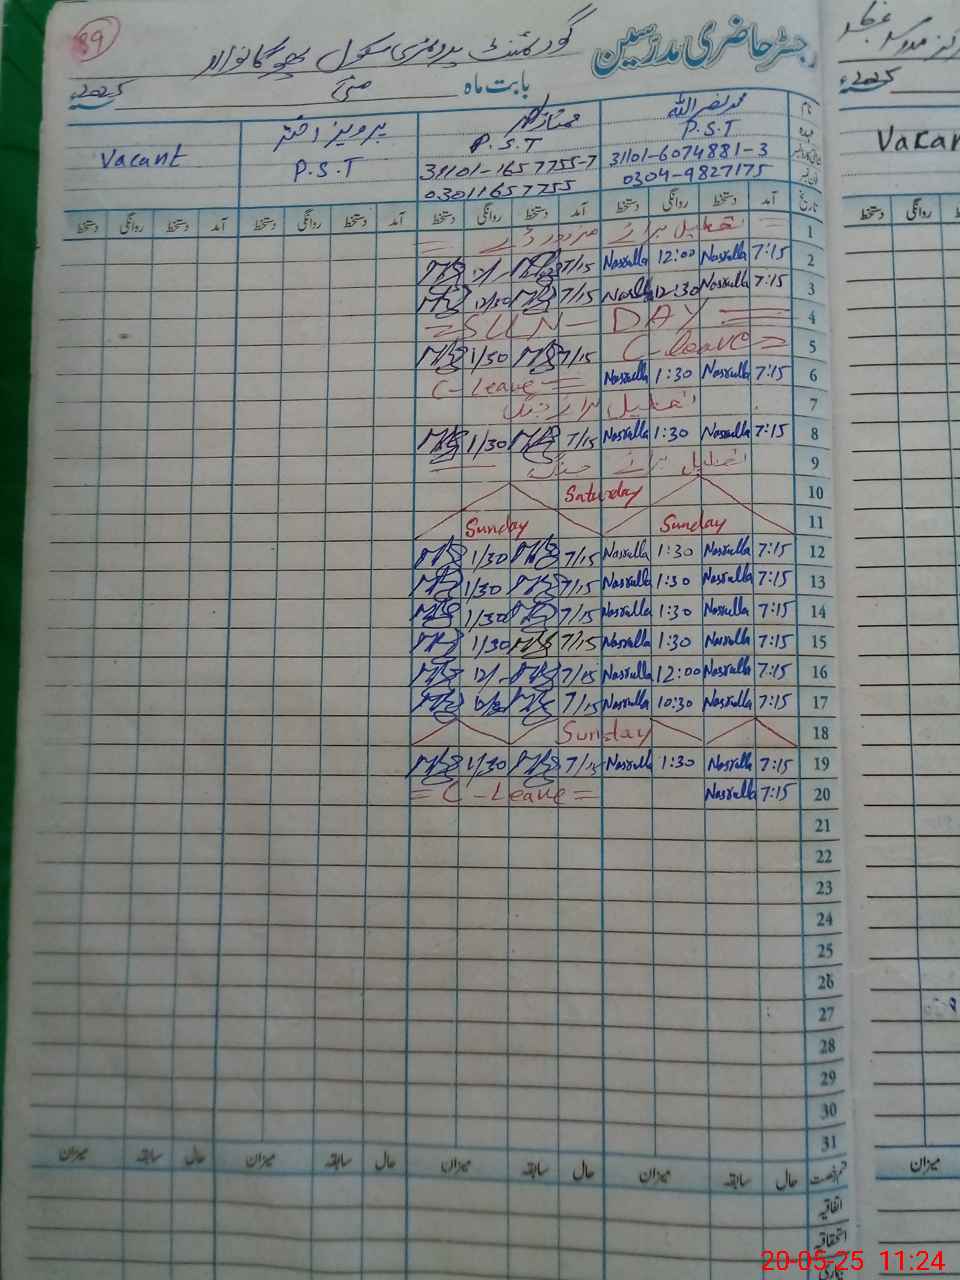 89
رجسٹر حاضری مدرسین گورنمنٹ پرائمری سکول
بابت ماہ مئی 2025ء
نام محمد نصر اللہ پرویز اختر Vacant
عہدہ P.S.T P.S.T P.S.T
31101-6074881-3 31101-1657755-7
0304-9827175 03011657755
تاریخ آمد دستخط روانگی دستخط آمد دستخط روانگی دستخط آمد دستخط روانگی دستخط آمد دستخط روانگی دستخط
1 تعطیل برائے مزدور ڈے
2 7:15 Nasrulla 12:00 Nasrulla 7/15
3 7:15 Nasrulla 12:30 Nasrulla 7/15 12/30
4 SUN-DAY
5 C-leave 7/15 1/30
6 7:15 Nasrulla 1:30 Nasrulla C-Leave
7 تعطیل برائے جنگ
8 7:15 Nasrulla 1:30 Nasrulla 7/15 1/30
9 تعطیل برائے جنگ
10 Saturday
11 Sunday Sunday
12 7:15 Nasrulla 1:30 Nasrulla 7/15 1/30
13 7:15 Nasrulla 1:30 Nasrulla 7/15 1/30
14 7:15 Nasrulla 1:30 Nasrulla 7/15 1/30
15 7:15 Nasrulla 1:30 Nasrulla 7/15 1/30
16 7:15 Nasrulla 12:00 Nasrulla 7/15 12/-
17 7:15 Nasrulla 10:30 Nasrulla 7/15
18 Sunday
19 7:15 Nasrulla 1:30 Nasrulla 7/15 1/30
20 7:15 Nasrulla = C-Leave =
21
22
23
24
25
26
27
28
29
30
31
قسم رخصت حال سابقہ میزان حال سابقہ میزان حال سابقہ میزان حال سابقہ میزان
اتفاقیہ
استحقاقیہ
بیماری
2025ء
Vacan
دستخط روانگی
میزان
20-05-25 11:24